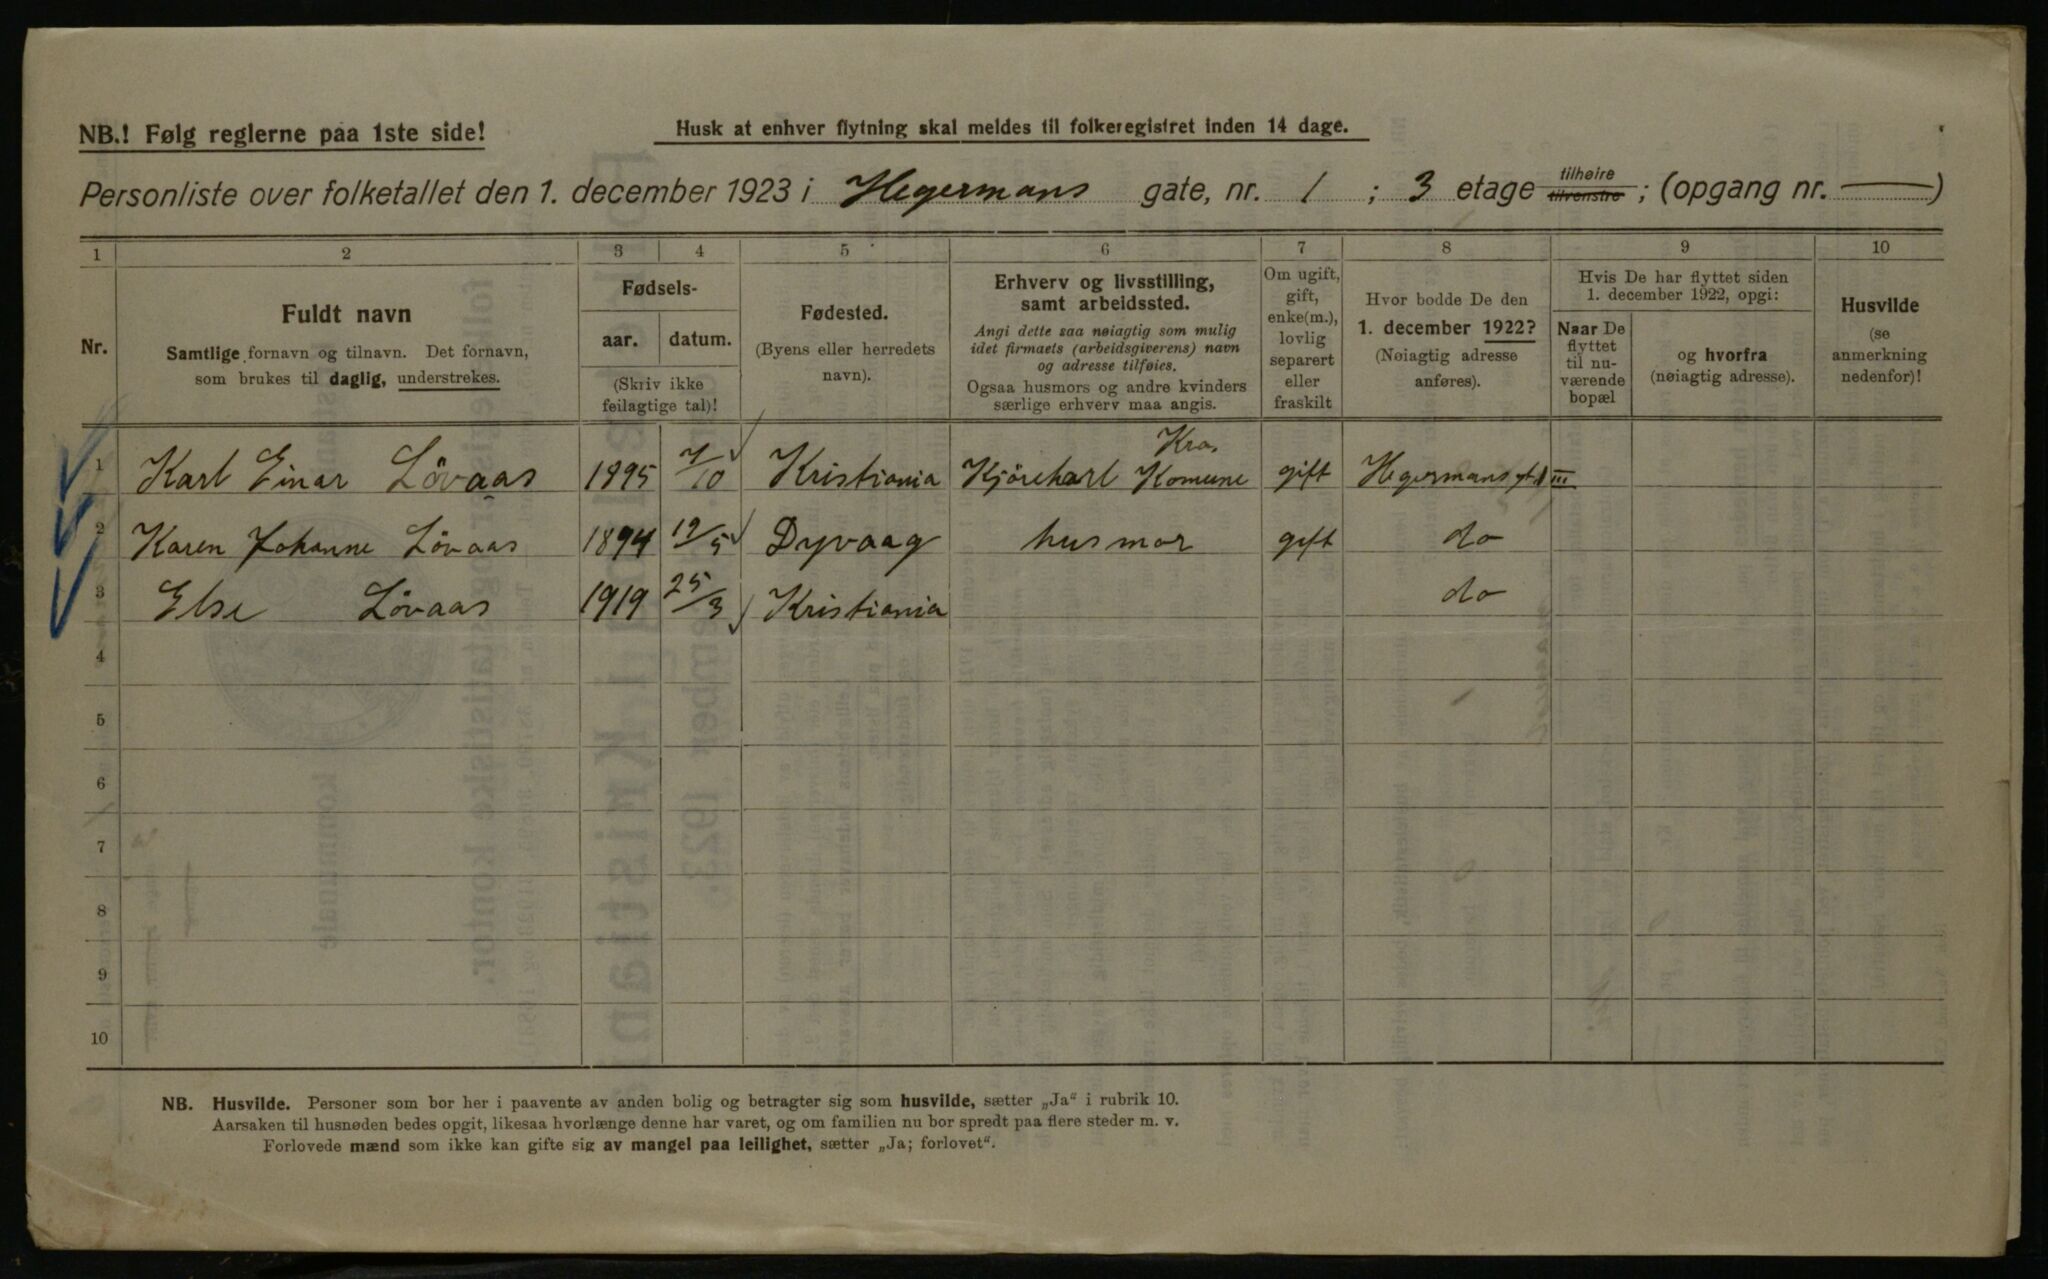 NB.! Følg reglerne paa 1ste side!
Husk at enhver flytning skal meldes til folkeregistret inden 14 dage.
Personliste over folketallet den 1. december 1923 i Hegermans gate, nr. 1 ; 3 etage tilhøire tilvenstre ; (opgang nr. —)
1 2 3 4 5 6 7 8 9 10
Nr.
Fuldt navn
Samtlige fornavn og tilnavn. Det fornavn,
som brukes til daglig, understrekes.
Fødsels-
aar. datum.
(Skriv ikke
feilagtige tal)!
Fødested.
(Byens eller herredets
navn).
Erhverv og livsstilling,
samt arbeidssted.
Angi dette saa nøiagtig som mulig
idet firmaets (arbeidsgiverens) navn
og adresse tilføies.
Ogsaa husmors og andre kvinders
særlige erhverv maa angis.
Om ugift,
gift,
enke(m.),
lovlig
separert
eller
fraskilt
Hvor bodde De den
1. december 1922?
(Nøiagtig adresse
anføres).
Hvis De har flyttet siden
1. december 1922, opgi:
Naar De
flyttet
til nu-
værende
bopæl
og hvorfra
(nøiagtig adresse).
Husvilde
(se
anmerkning
nedenfor)!
1 Karl Einar Lövaas 1895 7/10 Kristiania Kjörekarl Kra. Komune gift Hegermansgt. 1 III
2 Karen Johanne Lövaas 1894 12/5 Dyvaag husmor gift do
3 Else Lövaas 1919 25/3 Kristiania do
4
5
6
7
8
9
10
NB. Husvilde. Personer som bor her i paavente av anden bolig og betragter sig som husvilde, sætter „Ja“ i rubrik 10.
Aarsaken til husnøden bedes opgit, likesaa hvorlænge denne har varet, og om familien nu bor spredt paa flere steder m. v.
Forlovede mænd som ikke kan gifte sig av mangel paa leilighet, sætter „Ja; forlovet“.